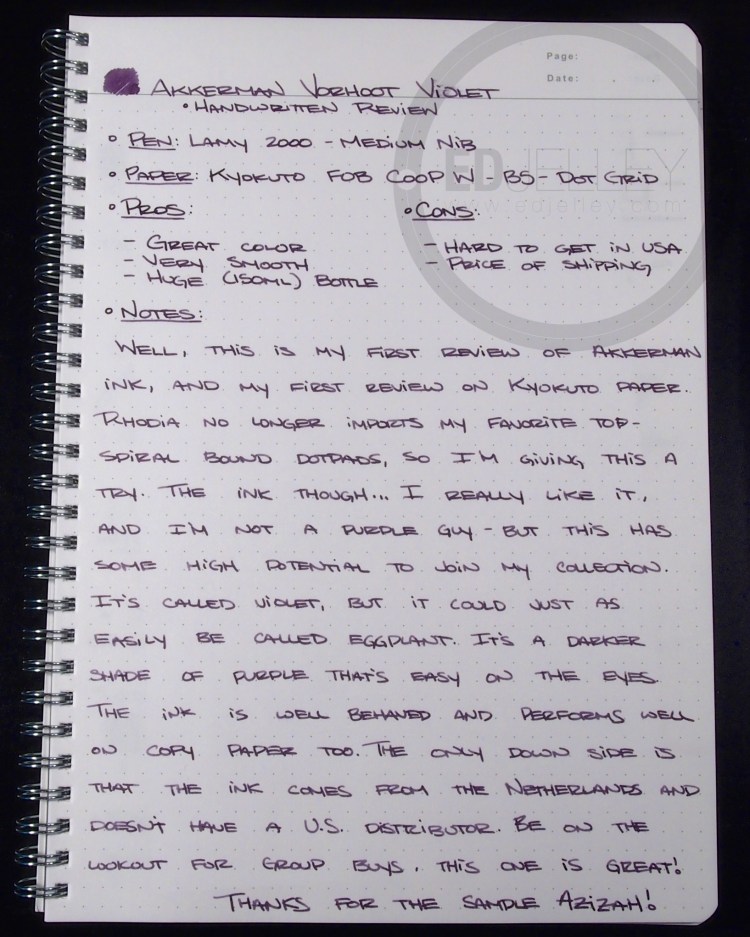 Page:
Date:
AKKERMAN VORHOOT VIOLET
• HANDWRITTEN REVIEW
• PEN: LAMY 2000 - MEDIUM NIB
• PAPER: KYOKUTO FOB COOP W - B5 - DOT GRID
EDJELLEY
www.edjelley.com
• PROS:
• CONS:
- GREAT COLOR
- VERY SMOOTH
- HUGE (150ML) BOTTLE
- HARD TO GET IN USA
- PRICE OF SHIPPING
• NOTES:
WELL, THIS IS MY FIRST REVIEW OF AKKERMAN
INK, AND MY FIRST REVIEW ON KYOKUTO PAPER.
RHODIA NO LONGER IMPORTS MY FAVORITE TOP-
SPIRAL BOUND DOTPADS, SO I'M GIVING THIS A
TRY. THE INK THOUGH... I REALLY LIKE IT,
AND I'M NOT A PURPLE GUY - BUT THIS HAS
SOME HIGH POTENTIAL TO JOIN MY COLLECTION.
IT'S CALLED VIOLET, BUT IT COULD JUST AS
EASILY BE CALLED EGGPLANT. IT'S A DARKER
SHADE OF PURPLE THAT'S EASY ON THE EYES.
THE INK IS WELL BEHAVED AND PERFORMS WELL
ON COPY PAPER TOO. THE ONLY DOWN SIDE IS
THAT THE INK COMES FROM THE NETHERLANDS AND
DOESN'T HAVE A U.S. DISTRIBUTOR. BE ON THE
LOOKOUT FOR GROUP BUYS, THIS ONE IS GREAT!
THANKS FOR THE SAMPLE AZIZAH!